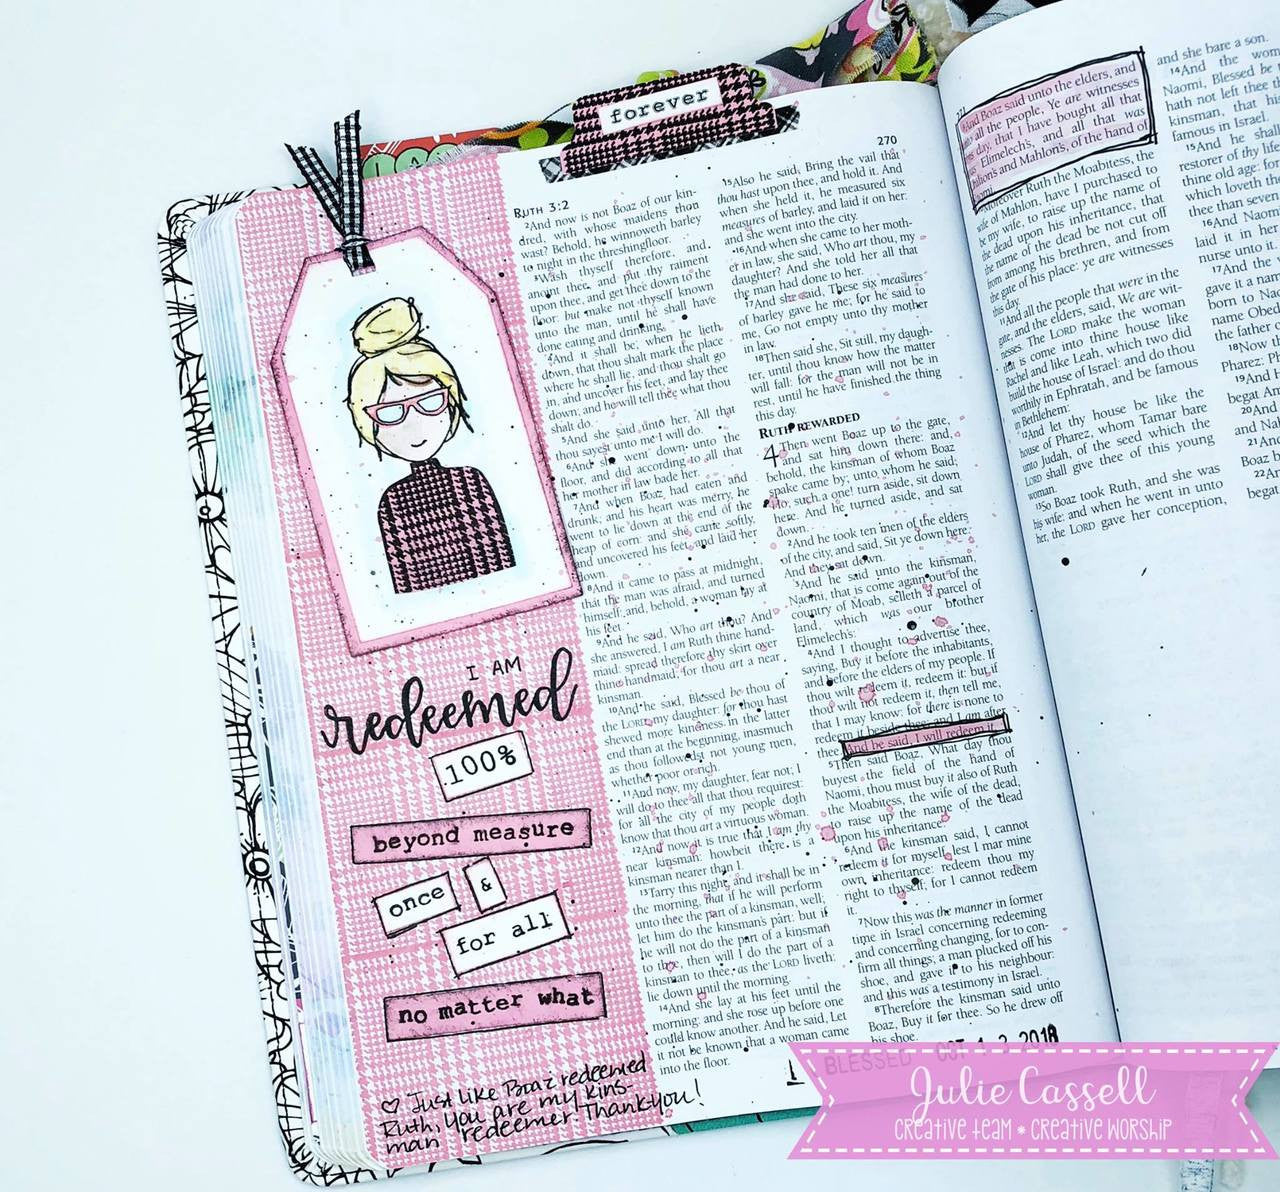 forever
I AM
redeemed
100%
beyond measure
once
&
for all
no matter what
♡ Just like Boaz redeemed
Ruth, you are my kins-
man redeemer! Thank you!
270
RUTH 3:2
2And now is not Boaz of our kin-
dred, with whose maidens thou
wast? Behold, he winnoweth barley
to night in the threshingfloor.
3Wash thyself therefore, and
anoint thee, and put thy raiment
upon thee, and get thee down to the
floor: but make not thyself known
unto the man, until he shall have
done eating and drinking.
4And it shall be, when he lieth
down, that thou shalt mark the place
where he shall lie, and thou shalt go
in, and uncover his feet, and lay thee
down; and he will tell thee what thou
shalt do.
5And she said unto her, All that
thou sayest unto me I will do.
6And she went down unto the
floor, and did according to all that
her mother in law bade her.
7And when Boaz had eaten and
drunk, and his heart was merry, he
went to lie down at the end of the
heap of corn: and she came softly,
and uncovered his feet, and laid her
down.
8And it came to pass at midnight,
that the man was afraid, and turned
himself: and, behold, a woman lay at
his feet.
9And he said, Who art thou? And
she answered, I am Ruth thine hand-
maid: spread therefore thy skirt over
thine handmaid; for thou art a near
kinsman.
10And he said, Blessed be thou of
the LORD, my daughter: for thou hast
shewed more kindness in the latter
end than at the beginning, inasmuch
as thou followedst not young men,
whether poor or rich.
11And now, my daughter, fear not; I
will do to thee all that thou requirest:
for all the city of my people doth
know that thou art a virtuous woman.
12And now it is true that I am thy
near kinsman: howbeit there is a
kinsman nearer than I.
13Tarry this night, and it shall be in
the morning, that if he will perform
unto thee the part of a kinsman, well;
let him do the kinsman's part: but if
he will not do the part of a kinsman
to thee, then will I do the part of a
kinsman to thee, as the LORD liveth:
lie down until the morning.
14And she lay at his feet until the
morning: and she rose up before one
could know another. And he said, Let
it not be known that a woman came
into the floor.
15Also he said, Bring the vail that
thou hast upon thee, and hold it. And
when she held it, he measured six
measures of barley, and laid it on her:
and she went into the city.
16And when she came to her moth-
er in law, she said, Who art thou, my
daughter? And she told her all that
the man had done to her.
17And she said, These six measures
of barley gave he me; for he said to
me, Go not empty unto thy mother
in law.
18Then said she, Sit still, my daugh-
ter, until thou know how the matter
will fall: for the man will not be in
rest, until he have finished the thing
this day.
RUTH REWARDED
4Then went Boaz up to the gate,
and sat him down there: and,
behold, the kinsman of whom Boaz
spake came by; unto whom he said,
Ho, such a one! turn aside, sit down
here. And he turned aside, and sat
down.
2And he took ten men of the elders
of the city, and said, Sit ye down here.
And they sat down.
3And he said unto the kinsman,
Naomi, that is come again out of the
country of Moab, selleth a parcel of
land, which was our brother
Elimelech's:
4And I thought to advertise thee,
saying, Buy it before the inhabitants,
and before the elders of my people. If
thou wilt redeem it, redeem it: but if
thou wilt not redeem it, then tell me,
that I may know: for there is none to
redeem it beside thee; and I am after
thee. And he said, I will redeem it.
5Then said Boaz, What day thou
buyest the field of the hand of
Naomi, thou must buy it also of Ruth
the Moabitess, the wife of the dead,
to raise up the name of the dead
upon his inheritance.
6And the kinsman said, I cannot
redeem it for myself, lest I mar mine
own inheritance: redeem thou my
right to thyself; for I cannot redeem
it.
7Now this was the manner in former
time in Israel concerning redeeming
and concerning changing, for to con-
firm all things; a man plucked off his
shoe, and gave it to his neighbour:
and this was a testimony in Israel.
8Therefore the kinsman said unto
Boaz, Buy it for thee. So he drew off
his shoe.
BLESSED OCT 1 2 2018
And Boaz said unto the elders, and
all the people, Ye are witnesses
day, that I have bought all that
Elimelech's, and all that was
Chilion's and Mahlon's, of the hand of
Moreover Ruth the Moabitess, the
wife of Mahlon, have I purchased to
be my wife, to raise up the name of
the dead upon his inheritance, that
the name of the dead be not cut off
from among his brethren, and from
the gate of his place: ye are witnesses
this day.
11And all the people that were in the
gate, and the elders, said, We are wit-
nesses. The LORD make the woman
that is come into thine house like
Rachel and like Leah, which two did
build the house of Israel: and do thou
worthily in Ephratah, and be famous
in Bethlehem:
12And let thy house be like the
house of Pharez, whom Tamar bare
unto Judah, of the seed which the
LORD shall give thee of this young
woman.
13So Boaz took Ruth, and she was
his wife: and when he went in unto
her, the LORD gave her conception,
and she bare a son.
14And the wom
Naomi, Blessed be t
hath not left thee t
kinsman, that hi
famous in Israel.
15And he shal
restorer of thy life
thine old age: for
which loveth th
thee than seve
16And Naom
laid it in her
nurse unto it.
17And the
gave it a nam
born to Na
name Obed
the father
18Now th
Pharez: P
19And h
begat Am
20And
and Nal
21And
Boaz b
22An
begat
Julie Cassell
CREATIVE TEAM * CREATIVE WORSHIP